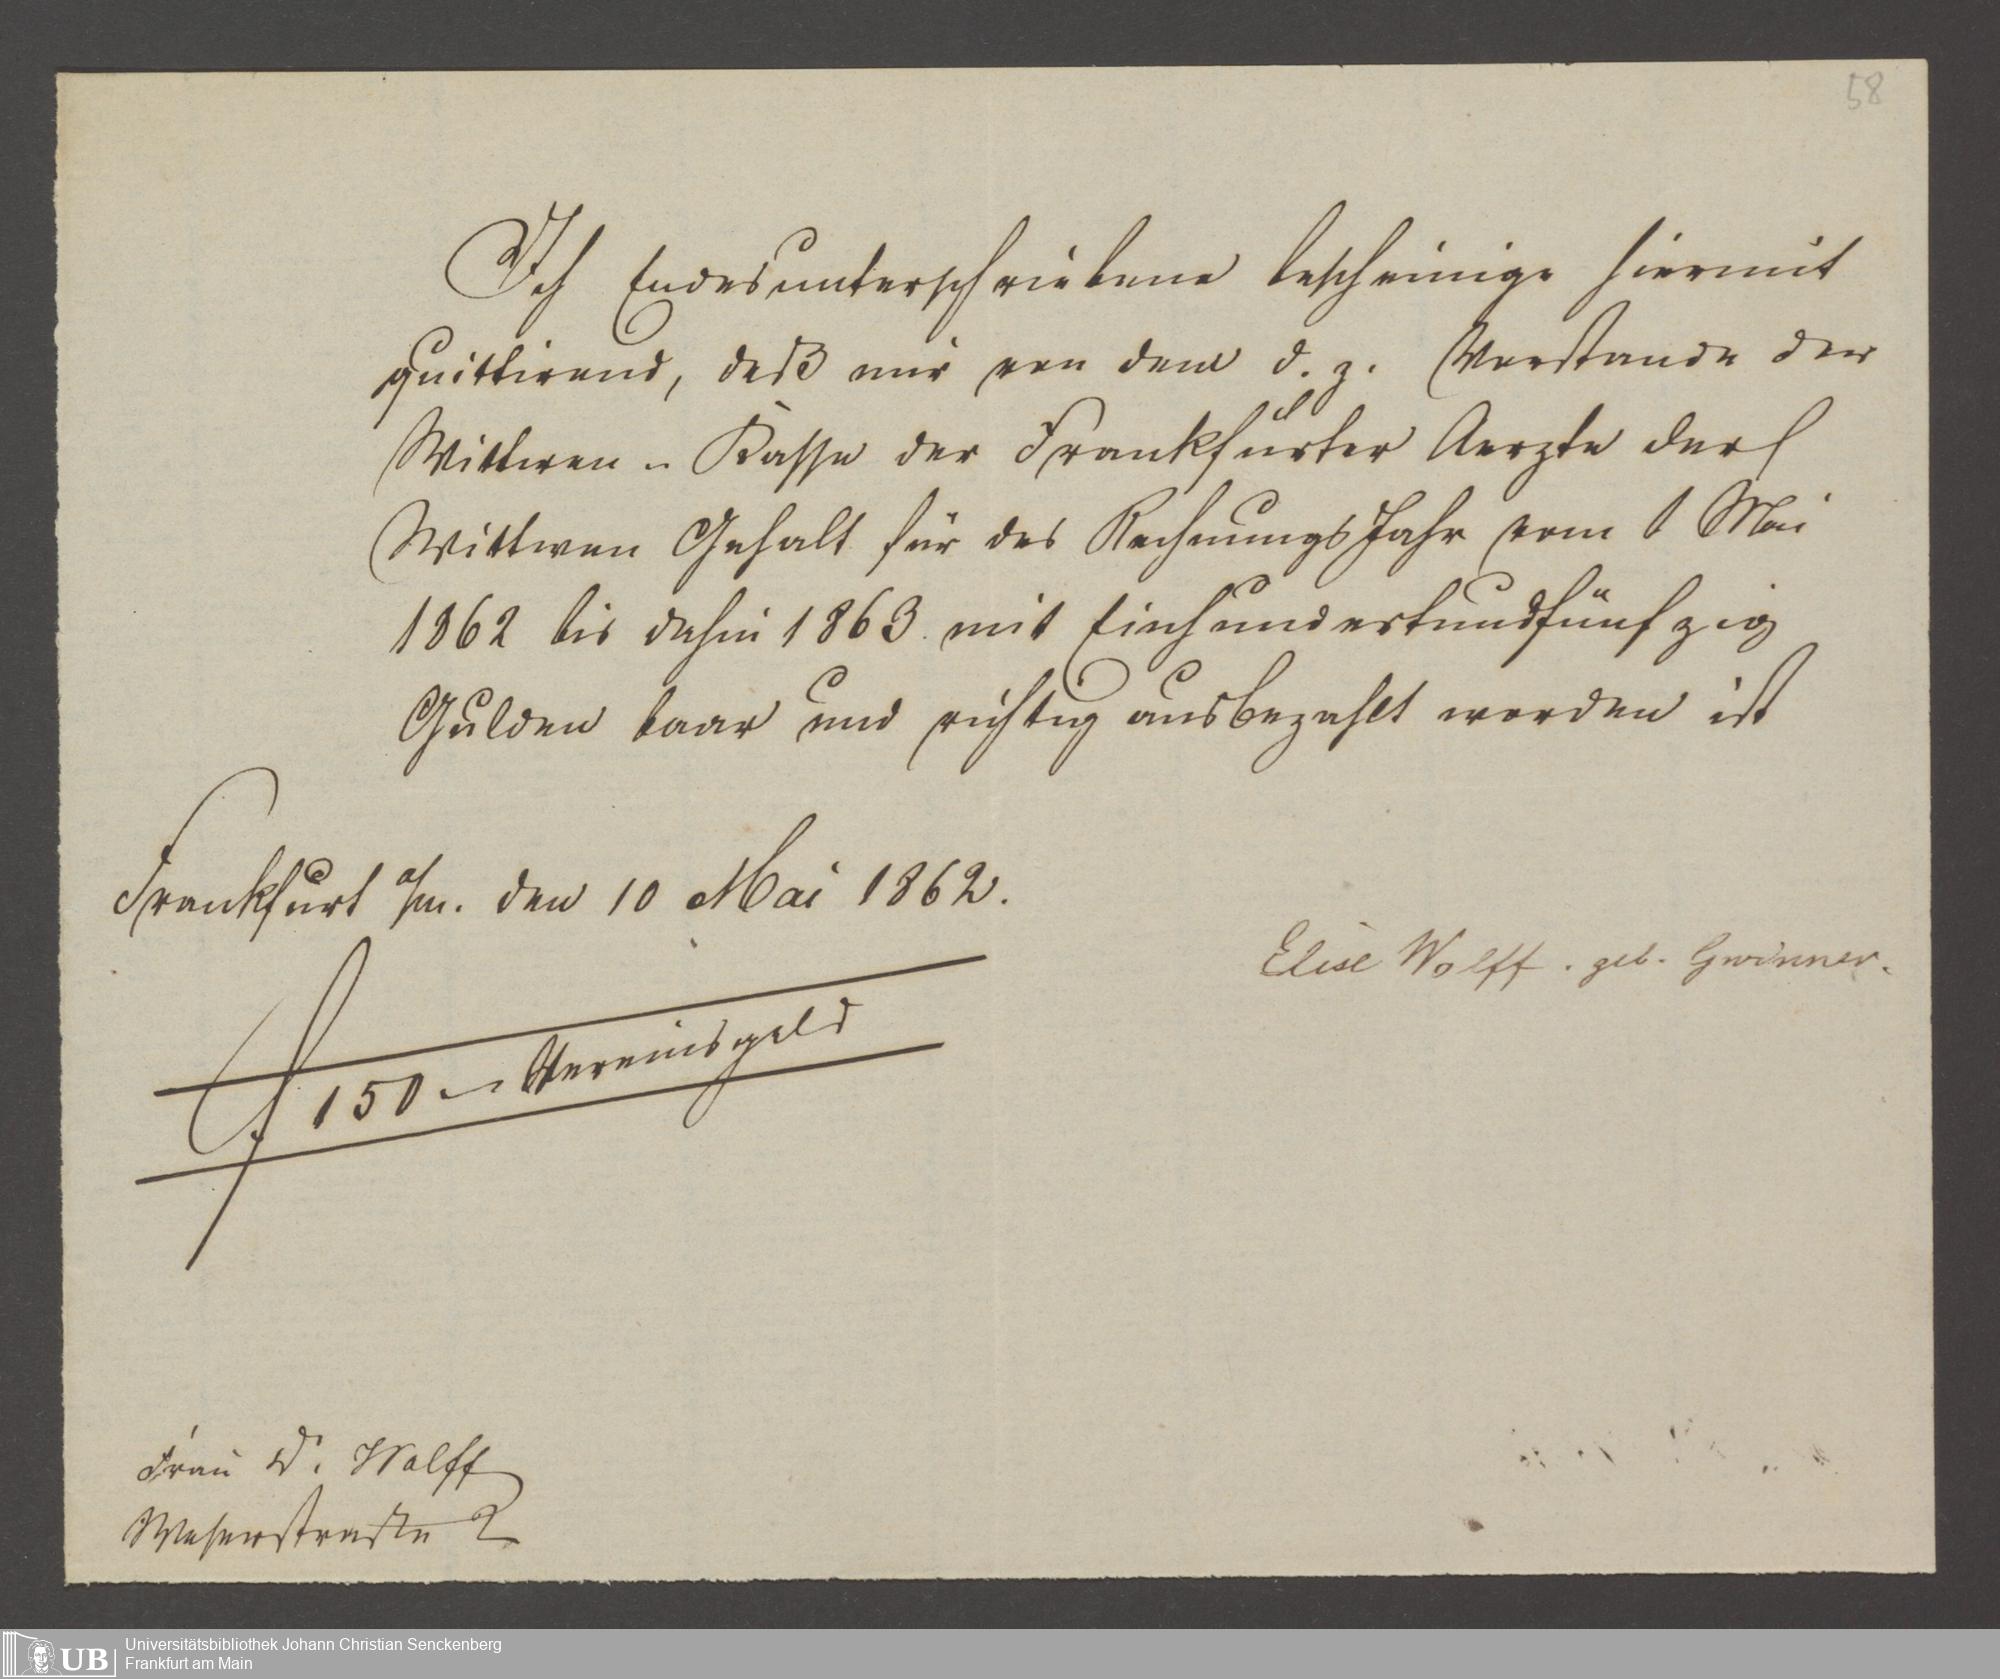 58
Ich Endesunterschriebene bescheinige hiermit
quittirend, daß mir von dem d. z. Vorstande der
Wittwen-Kasse der Frankfurter Aerzte der
Wittwen Gehalt für das RechnungsJahr vom 1 Mai
1862 bis dahin 1863. mit Einhundertundfünfzig
Gulden baar und richtig ausbezahlt worden ist
Frankfurt a/m. den 10 Mai 1862.
Elise Wolff. geb. Gwinner.
f 150 — Vereinsgeld
Frau D. Wolff
Weserstraße 2
UB
Universitätsbibliothek Johann Christian Senckenberg
Frankfurt am Main